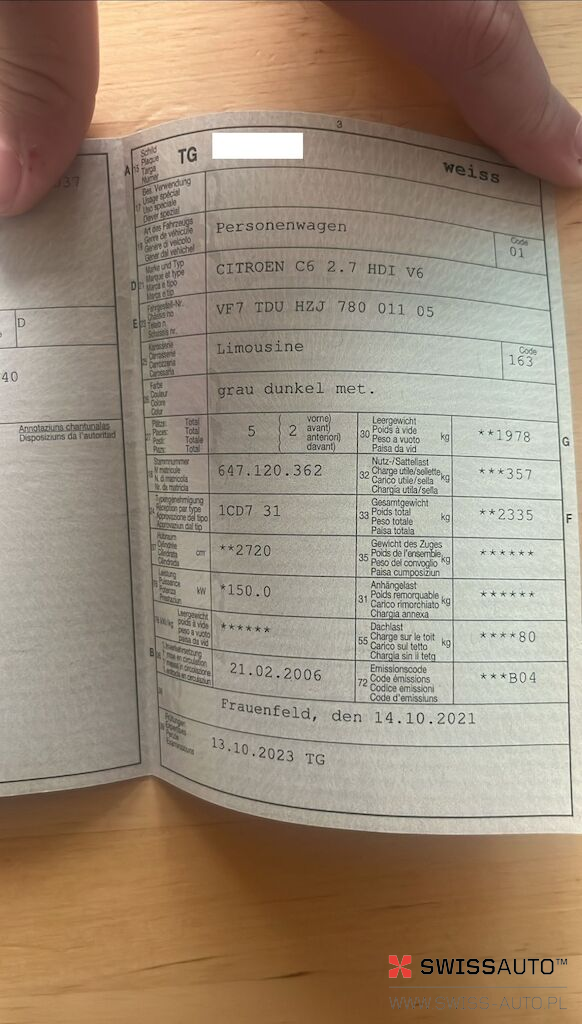 037
D
40
Annotaziuns chantunalas
Disposiziuns da l'autoritad
3
A 15 Schild
Plaque
Targa
Numer
TG
weiss
17 Bes. Verwendung
Usage spécial
Uso speciale
Diever spezial
19 Art des Fahrzeugs
Genre de véhicule
Genere di veicolo
Gener dal vehichel
Personenwagen
Code
01
D 21 Marke und Typ
Marque et type
Marca e tipo
Marca e tip
CITROEN C6 2.7 HDI V6
E 23 Fahrgestell-Nr.
Châssis no
Telaio n.
Schassis nr.
VF7 TDU HZJ 780 011 05
25 Karosserie
Carrosserie
Carrozzeria
Carossaria
Limousine
Code
163
26 Farbe
Couleur
Colore
Colur
grau dunkel met.
27 Plätze: Total
Places: Total
Posti: Totale
Plazs: Total
5
( 2
vorne)
avant)
anteriori)
davant)
30 Leergewicht
Poids à vide
Peso a vuoto
Paisa da vid
kg
**1978
G
18 Stammnummer
N matricule
N. di matricola
Nr. da matricla
647.120.362
32 Nutz-/Sattellast
Charge utile/sellette
Carico utile/sella
Chargia utila/sella
kg
***357
24 Typengenehmigung
Réception par type
Approvazione del tipo
Approvaziun dal tip
1CD7 31
33 Gesamtgewicht
Poids total
Peso totale
Paisa totala
kg
**2335
F
37 Hubraum
Cylindrée
Cilindrata
Cilindrada
cm³
**2720
35 Gewicht des Zuges
Poids de l'ensemble
Peso del convoglio
Paisa cumposiziun
kg
******
76 Leistung
Puissance
Potenza
Prestaziun
kW
*150.0
31 Anhängelast
Poids remorquable
Carico rimorchiato
Chargia annexa
kg
******
78 kW/kg
Leergewicht
poids à vide
peso a vuoto
paisa da vid
******
55 Dachlast
Charge sur le toit
Carico sul tetto
Chargia sin il tetg
kg
****80
B 36
1. Inverkehrsetzung
21.02.2006
72 Emissionscode
Code émissions
Codice emissioni
Code d'emissiuns
***B04
38
Frauenfeld, den 14.10.2021
39 Prüfungen
Expertises
Perizie
Examinaziuns
13.10.2023 TG
SWISSAUTO™
WWW.SWISS-AUTO.PL